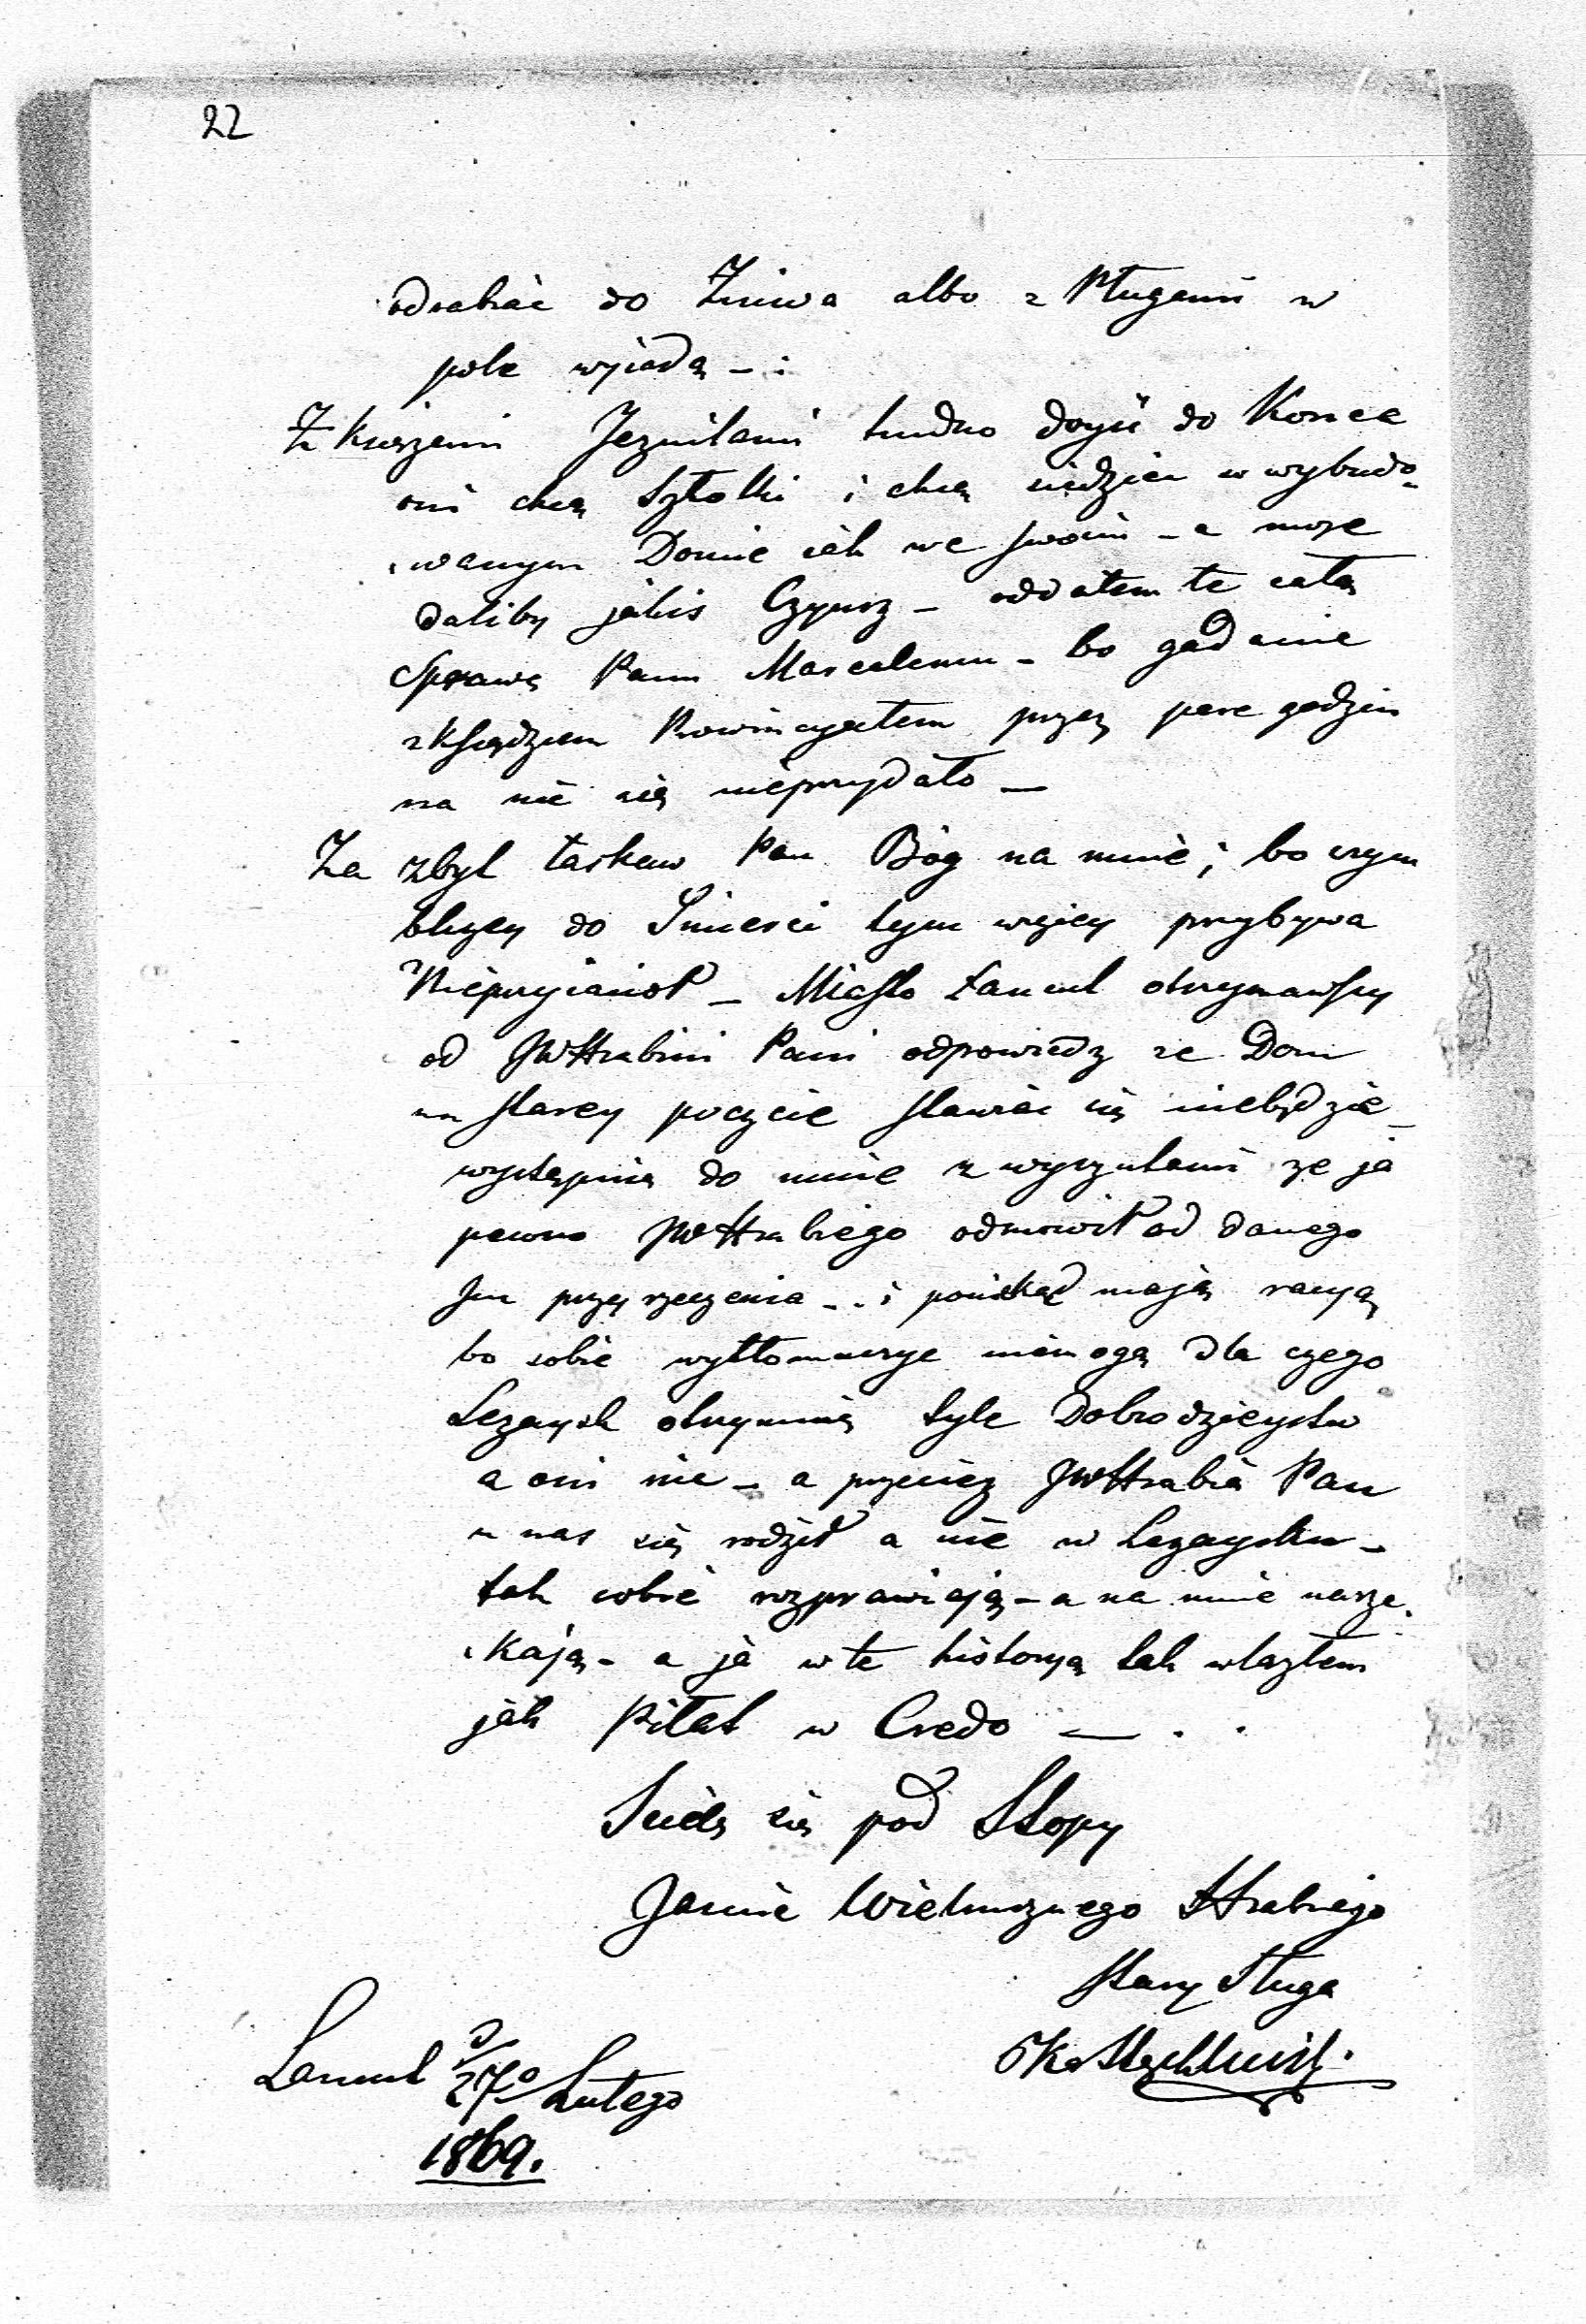 22
odrabiać do Żniwa albo z Pługami w
pole wyiadą - :
Z Xsiężmi Jezuitami trudno dojść do Konca
oni chcą Sztolki i chcą siedzieć w wybudo-
wanym Domie jak we swoim - a może
daliby jakis Czynsz - oddałem te całą
Sprawę Panu Marcelemu - bo gadanie
z Księdzem Prowincyałem przez pare godzin
na nic się nieprzydało -
Za zbyt łaskaw Pan Bóg na mnie; bo czym
bliżey do Śmierci tym więcey przybywa
Nieprzyiaciół - Miasto Łancut otrzymawszy
od JWHrabini Pani odpowiedz ze Dom
na starey poczcie stawiać się niebędzie -
wystąpiną do mnie z wyrzutami ze ja
pewno JWHrabiego odmowił od danego
Im przyrzeczenia - . i poniekąd mają racyą
bo sobie wytłomaczyc niemogą dla czego
Lezaysk otrzymuią tyle Dobrodzieystw
a oni nic - a przeciez JWHrabia Pan
u nas się rodził a nie w Lezaysku -
tak sobie rozprawiają - a na mnie narze-
kają - a ja w te historyą tak wlazłem
jak Piłat w Credo - . .
Ścielę się pod Stopy
Jaśnie Wielmożnego Hrabiego
stary Sługa
Łancut d/27go Lutego
1869.